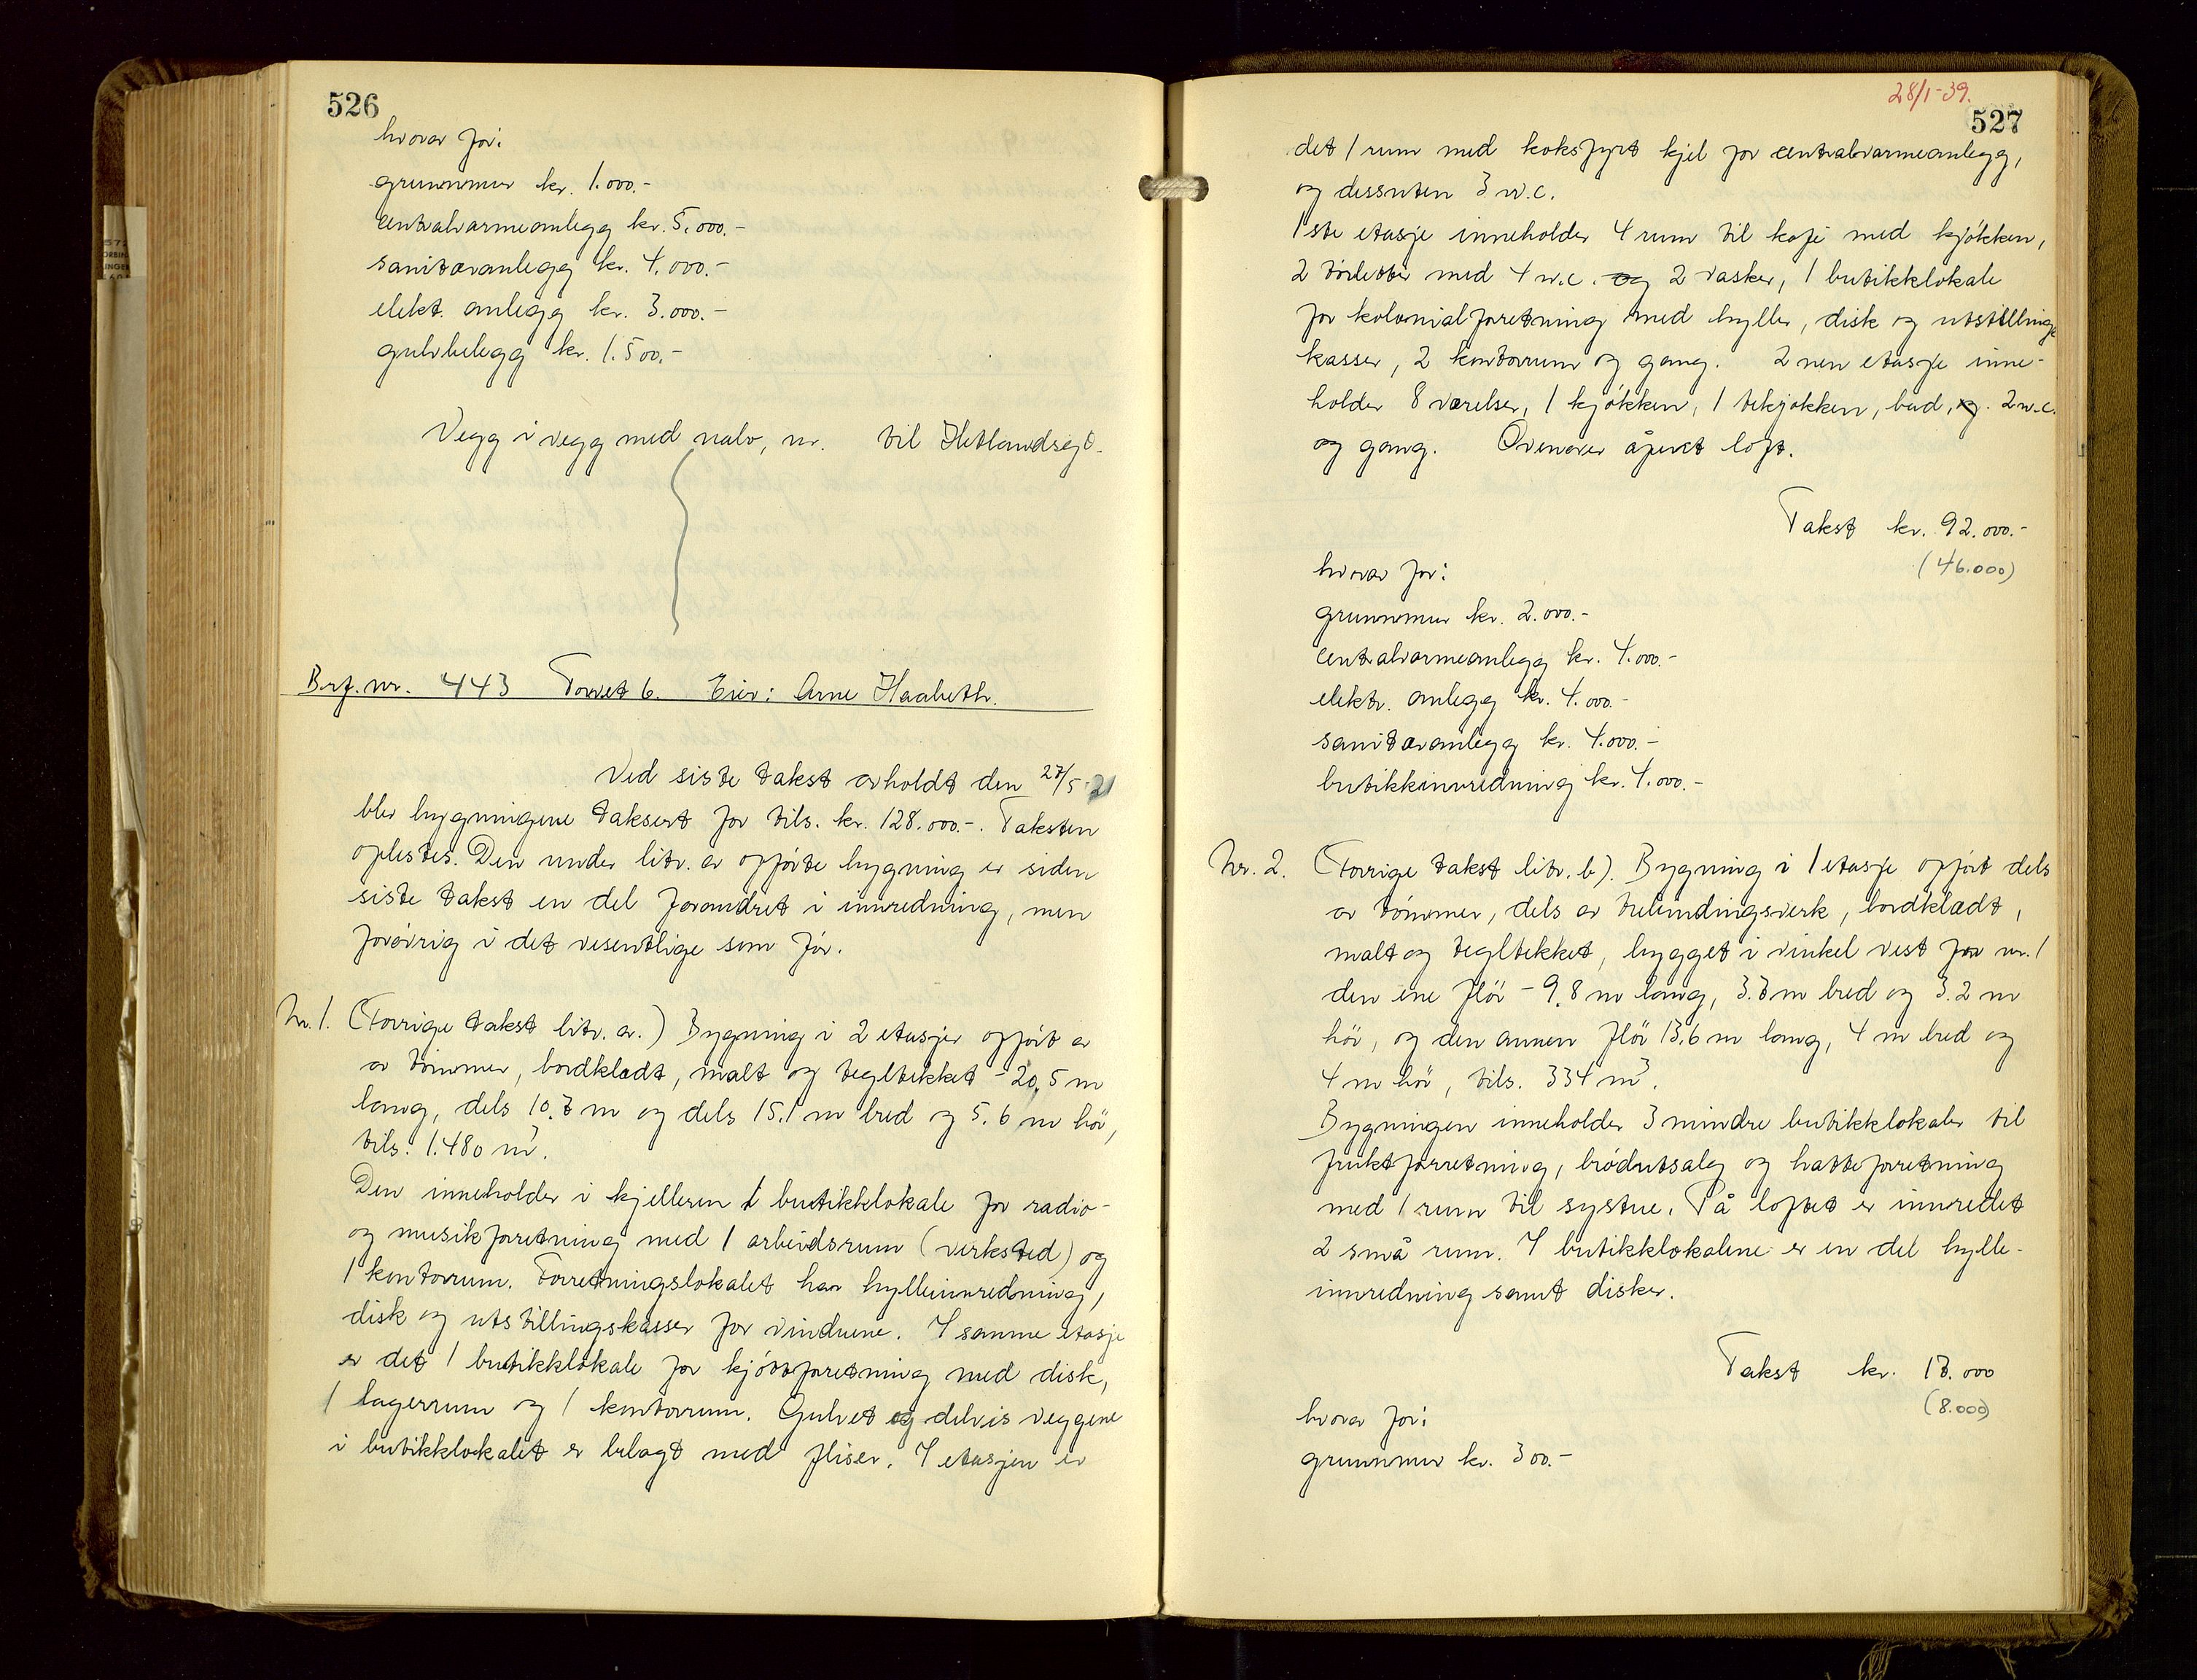 526
hvorav for:
grunnmur kr. 1.000.-
centralvarmeanlegg kr. 5.000.-
sanitæranlegg kr. 4.000.-
elekt. anlegg kr. 3.000.-
gulvbelegg kr. 1.500.-
Vegg i vegg med nabo, nr. til Hetlandsgt.
Brf. nr. 443 Torvet 6. Eier: Arne Haabeth.
Ved siste takst avholdt den 27/5-21
blev bygningene taksert for tils. kr. 128.000.-. Taksten
oplestes. Den under litr. a opførte bygning er siden
siste takst en del forandret i innredning, men
forøvrig i det vesentlige som før.
Nr. 1. (Forrige takst litr. a.) Bygning i 2 etasjer opført av
av tømmer, bordklædt, malt og tegltekket - 20,5 m
lang, dels 10.7 m og dels 15.1 m bred og 5.6 m høi,
tils. 1.480 m³.
Den inneholder i kjelleren 1 butikklokale for radio-
og musikforretning med 1 arbeidsrum (verksted) og
1 kontorrum. Forretningslokalet har hylleinnredning,
disk og utstillingskasser for vinduene. I samme etasje
er det 1 butikklokale for kjøttforretning med disk,
1 lagerrum og 1 kontorrum. Gulvet og delvis veggene
i butikklokalet er belagt med fliser. I etasjen er
28/1-39.
527
det 1 rum med koksfyrt kjel for centralvarmeanlegg,
og dessuten 3 w.c.
1ste etasje inneholder 4 rum til kafé med kjøkken,
2 toiletter med 4 w.c. og 2 vasker, 1 butikklokale
for kolonialforretning med hyller, disk og utstillings
kasser, 2 kontorrum og gang. 2nen etasje inne-
holder 8 værelser, 1 kjøkken, 1 tekjøkken, bad, og 2 w.c.
og gang. Ovenover åpent loft.
Takst kr. 92.000.-
(46.000)
hvorav for:
grunnmur kr. 2.000.-
centralvarmeanlegg kr. 4.000.-
elektr. anlegg kr. 4.000.-
sanitæranlegg kr. 4.000.-
butikkinnredning kr. 4.000.-
Nr. 2. (Forrige takst litr. b). Bygning i 1 etasje opført dels
av tømmer, dels av utmuringsverk, bordklædt,
malt og tegltekket, bygget i vinkel vest for nr. 1
den ene fløi - 9.8 m lang, 3.7 m bred og 3.2 m
høi, og den annen fløi 13.6 m lang, 4 m bred og
4 m høi, tils. 334 m³.
Bygningen inneholder 3 mindre butikklokaler til
fruktforretning, brødutsalg og hatteforretning
med 1 rum til systue. På loftet er innredet
2 små rum. I butikklokalene er en del hylle-
innredning samt disker.
Takst kr. 17.000
(8.000)
hvorav for:
grunnmur kr. 300.-